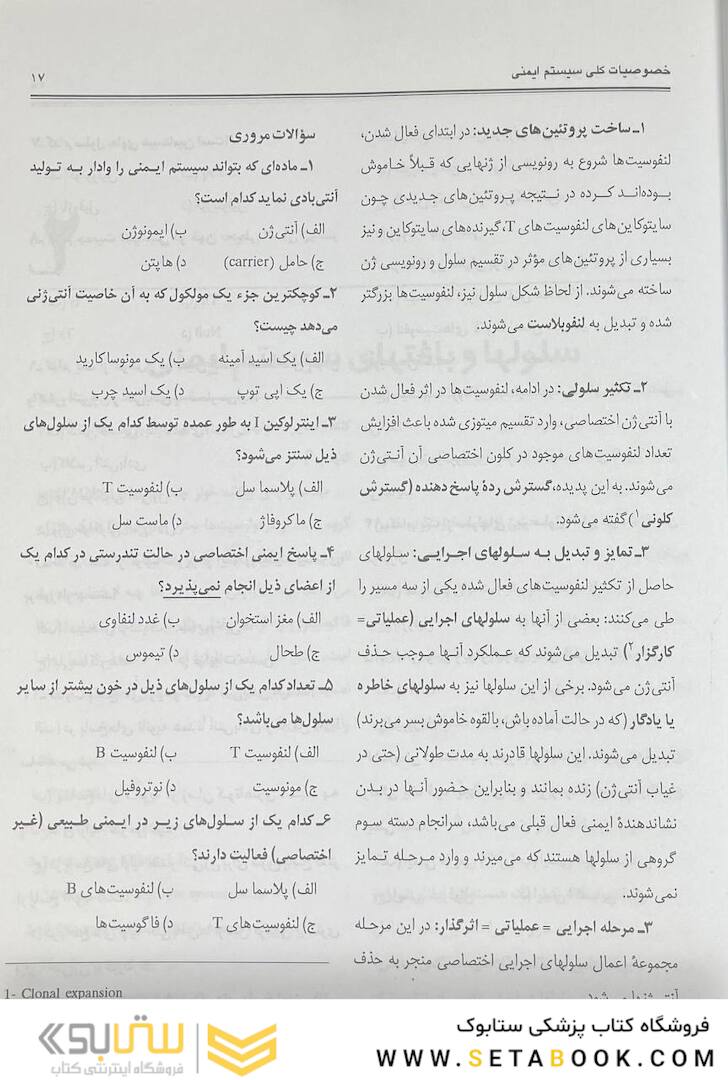 خصوصیات کلی سیستم ایمنی
۱۷
۱ـ ساخت پروتئین‌های جدید: در ابتدای فعال شدن،
لنفوسیت‌ها شروع به رونویسی از ژنهایی که قبلاً خاموش
بوده‌اند کرده در نتیجه پروتئین‌های جدیدی چون
سایتوکاین‌های لنفوسیت‌های T، گیرنده‌های سایتوکاین و نیز
بسیاری از پروتئین‌های مؤثر در تقسیم سلول و رونویسی ژن
ساخته می‌شوند. از لحاظ شکل سلول نیز، لنفوسیت‌ها بزرگتر
شده و تبدیل به لنفوبلاست می‌شوند.
۲ـ تکثیر سلولی: در ادامه، لنفوسیت‌ها در اثر فعال شدن
با آنتی‌ژن اختصاصی، وارد تقسیم میتوزی شده باعث افزایش
تعداد لنفوسیت‌های موجود در کلون اختصاصی آن آنتی‌ژن
می‌شوند. به این پدیده، گسترش ردهٔ پاسخ دهنده (گسترش
کلونی۱) گفته می‌شود.
۳ـ تمایز و تبدیل به سلولهای اجرایی: سلولهای
حاصل از تکثیر لنفوسیت‌های فعال شده یکی از سه مسیر را
طی می‌کنند: بعضی از آنها به سلولهای اجرایی (عملیاتی=
کارگزار۲) تبدیل می‌شوند که عملکرد آنها موجب حذف
آنتی‌ژن می‌شود. برخی از این سلولها نیز به سلولهای خاطره
یا یادگار (که در حالت آماده باش، بالقوه خاموش بسر می‌برند)
تبدیل می‌شوند. این سلولها قادرند به مدت طولانی (حتی در
غیاب آنتی‌ژن) زنده بمانند و بنابراین حضور آنها در بدن
نشاندهندهٔ ایمنی فعال قبلی می‌باشد، سرانجام دسته سوم
گروهی از سلولها هستند که می‌میرند و وارد مرحله تمایز
نمی‌شوند.
۳ـ مرحله اجرایی = عملیاتی = اثرگذار: در این مرحله
مجموعهٔ اعمال سلولهای اجرایی اختصاصی منجر به حذف
سؤالات مروری
۱ـ ماده‌ای که بتواند سیستم ایمنی را وادار به تولید
آنتی‌بادی نماید کدام است؟
الف) آنتی ژن ب) ایمونوژن
ج) حامل (carrier) د) هاپتن
۲ـ کوچکترین جزء یک مولکول که به آن خاصیت آنتی‌ژنی
می‌دهد چیست؟
الف) یک اسید آمینه ب) یک مونوساکارید
ج) یک اپی توپ د) یک اسید چرب
۳ـ اینترلوکین I به طور عمده توسط کدام یک از سلول‌های
ذیل سنتز می‌شود؟
الف) پلاسما سل ب) لنفوسیت T
ج) ماکروفاژ د) ماست سل
۴ـ پاسخ ایمنی اختصاصی در حالت تندرستی در کدام یک
از اعضای ذیل انجام نمی‌پذیرد؟
الف) مغز استخوان ب) غدد لنفاوی
ج) طحال د) تیموس
۵ـ تعداد کدام یک از سلول‌های ذیل در خون بیشتر از سایر
سلول‌ها می‌باشد؟
الف) لنفوسیت T ب) لنفوسیت B
ج) مونوسیت د) نوتروفیل
۶ـ کدام یک از سلول‌های زیر در ایمنی طبیعی (غیر
اختصاصی) فعالیت دارند؟
الف) پلاسما سل ب) لنفوسیت‌های B
ج) لنفوسیت‌های T د) فاگوسیت‌ها
1- Clonal expansion
فروشگاه کتاب پزشکی ستابوک
WWW.SETABOOK.COM
ستابوک
فروشگاه اینترنتی کتاب